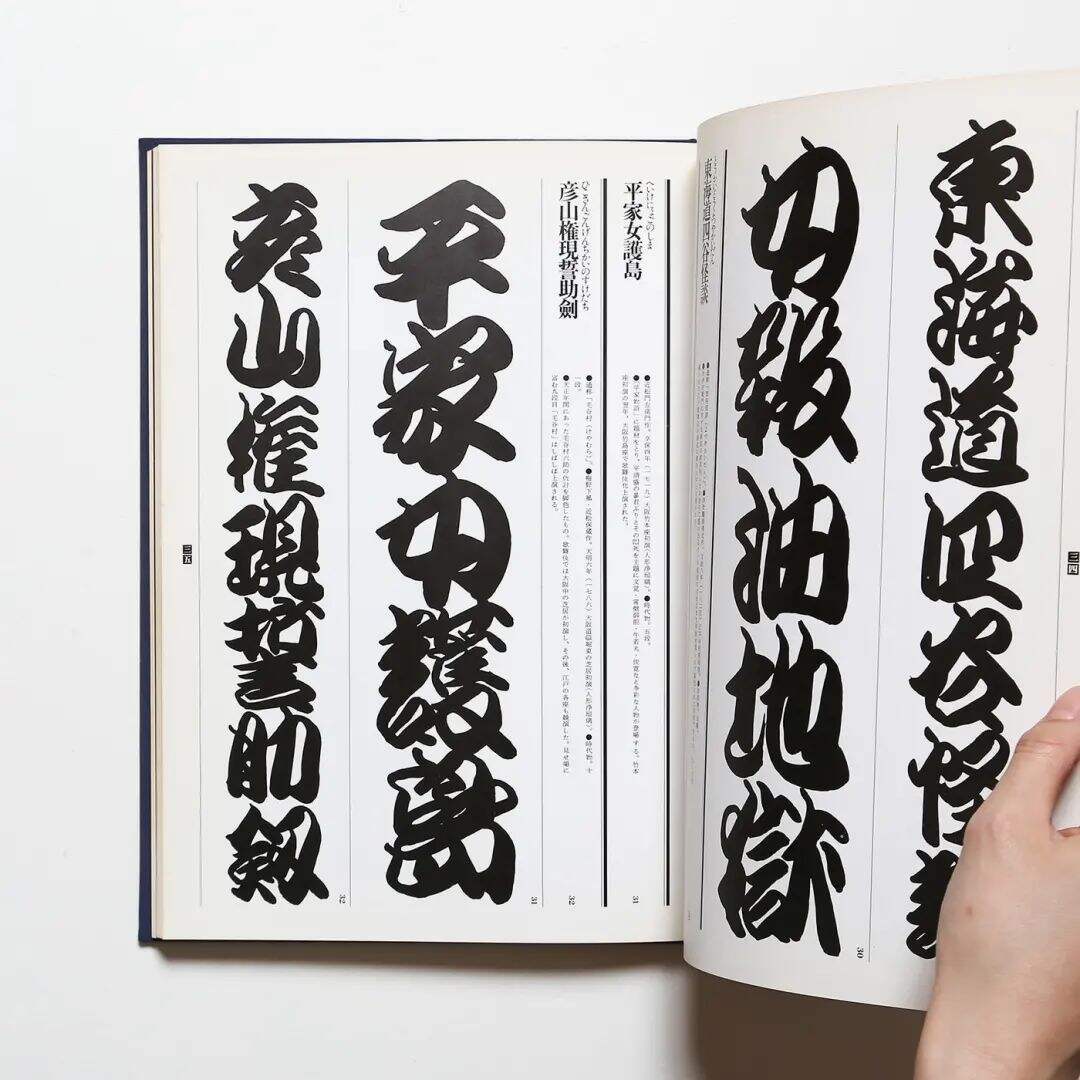 東海道四谷怪
女殺油地獄
30
とうかいどうよつやかいだん
東海道四谷怪談
三四
へいけにょごのしま
平家女護島
●近松門左衛門作。享保四年(一七一九)大阪竹本座初演(人形浄瑠璃)。●時代物。五段。
●『平家物語』に題材をとり、平清盛の暴君ぶりとその悶死を主題に文覚・常盤御前・牛若丸・俊寛など多彩な人物が登場する。竹本
座初演の翌年、大阪竹島座で歌舞伎化上演された。
31
ひこさんごんげんちかいのすけだち
彦山権現誓助劍
●通称「毛谷村(けやむら)」。●梅野下風・近松保蔵作。天明六年(一七八六)大阪道頓堀東の芝居初演(人形浄瑠璃)。●時代物。十
一段。
●天正年間にあった毛谷村六助の仇討を脚色したもの。歌舞伎では大阪中の芝居が初演し、その後、江戸の各座も競演した。見せ場に
富む九段目「毛谷村」はしばしば上演される。
32
平家女護島
31
彦山権現誓助劍
32
三五